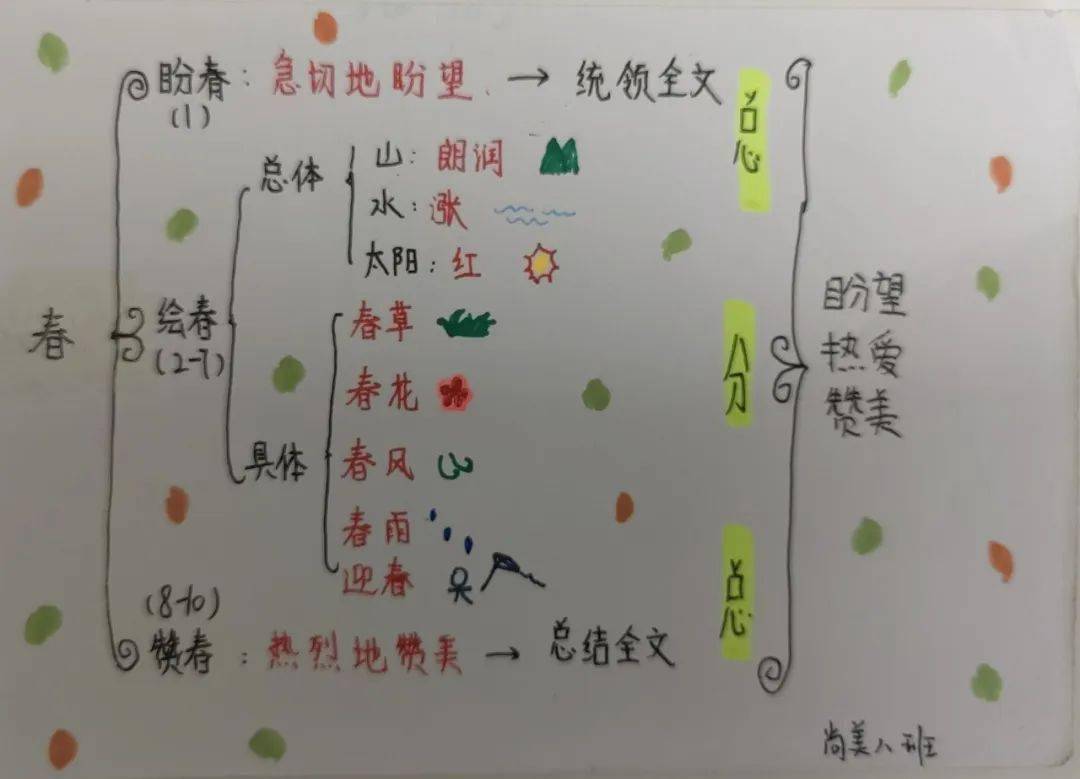 春
盼春：急切地盼望 → 统领全文
(1)
绘春
(2-7)
总体
山：朗润
水：涨
太阳：红
具体
春草
春花
春风
春雨
迎春
(8-10)
赞春：热烈地赞美 → 总结全文
总
分
总
盼望
热爱
赞美
尚美八班